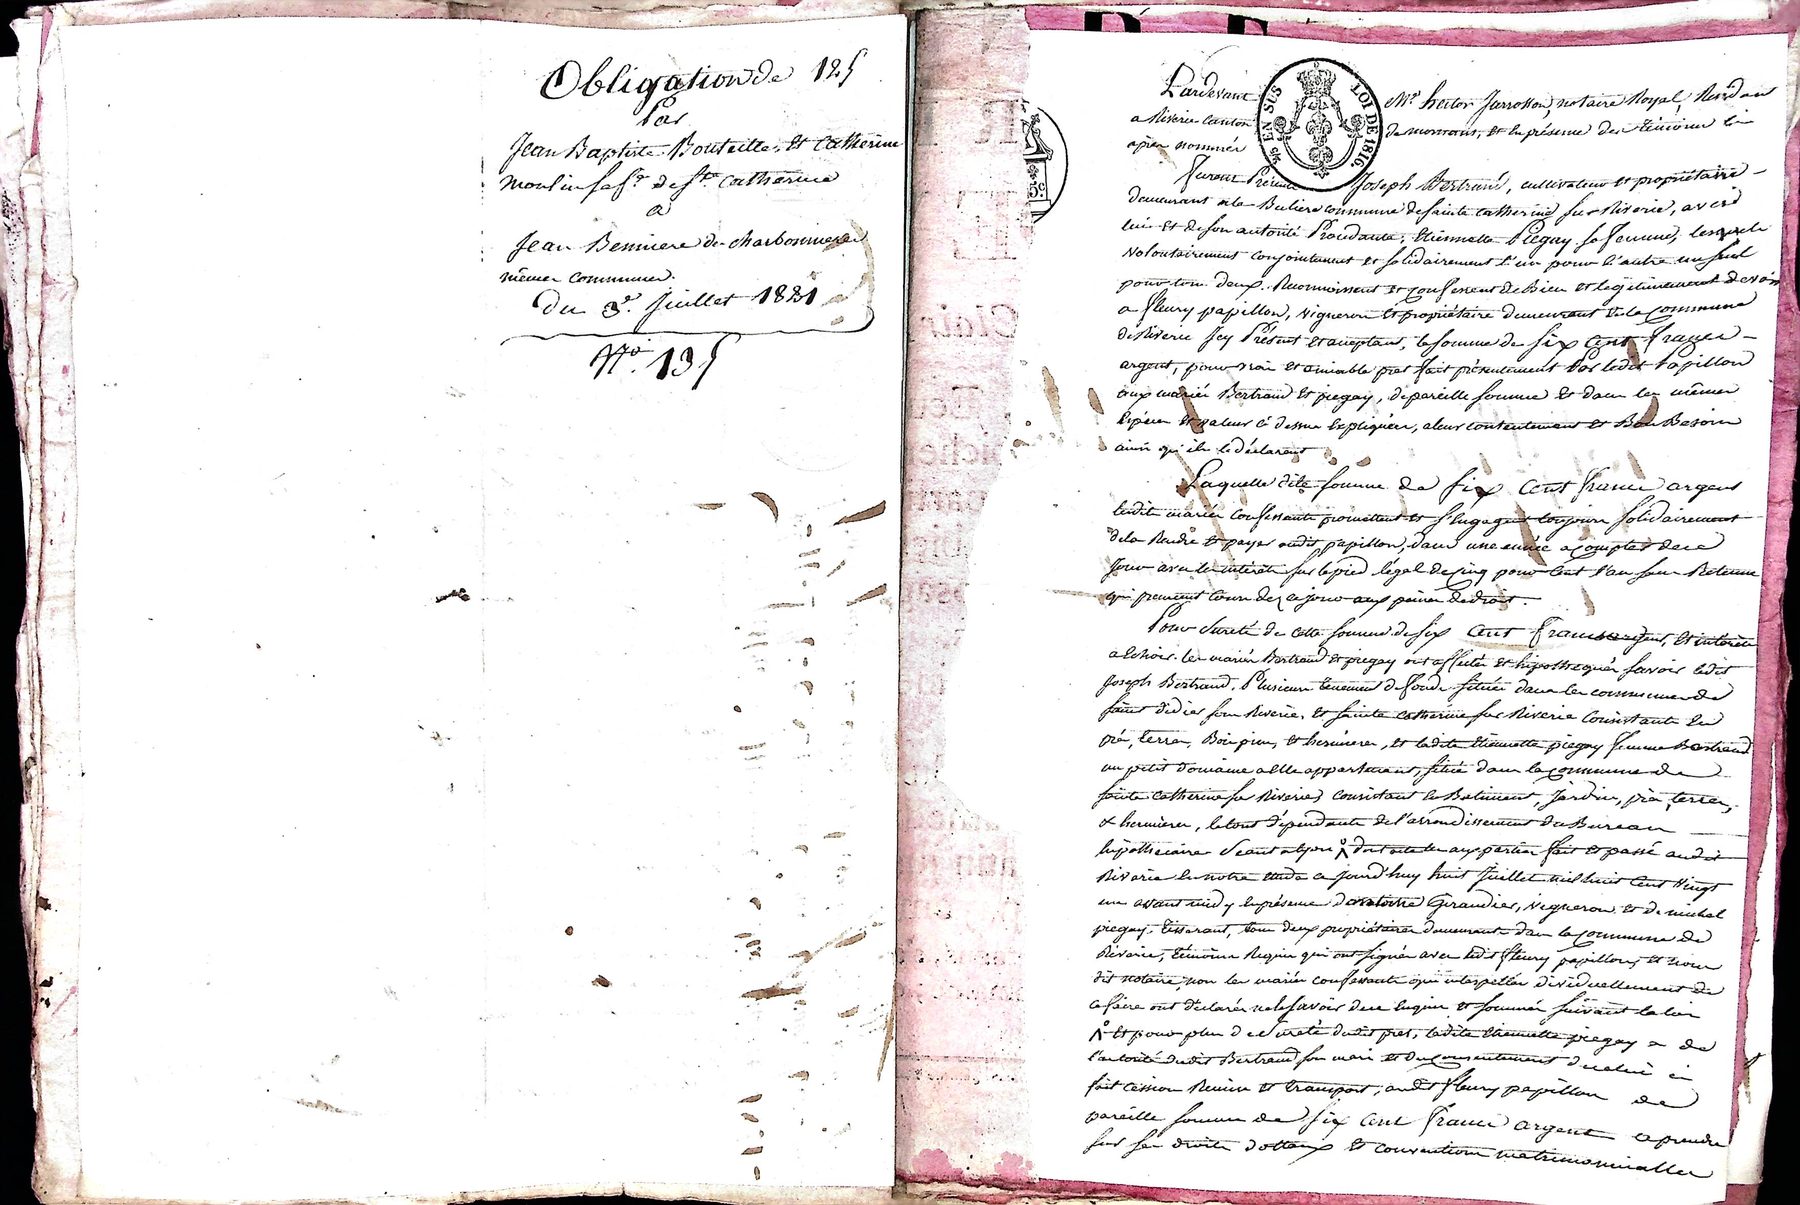 Obligation de 125
Par
Jean Baptiste Bouteille, et Catherine
moulin sa fe. de Ste Catherine
a
Jean Bemiere de charbonnieres
même commune.
Du 3e. Juillet 1821
No. 135
EN SUS LOI DE 1816.
Pardevant Me. hector Jarrosson, notaire Royal, Residant
a Riverie canton de mornant, et en présence des témoins en
après nommés
Furent Présents Joseph Bertrand, cultivateur et propriétaire
demeurant commune de sainte Catherine sur Riverie, avec
lui et de son autorité Procédante, Etiennette Piegay sa femme, lesquels
volontairement conjointement et solidairement l'un pour l'autre un seul
pour tous deux, Reconnoissent et confessent de Bien et légitimement devoir
a fleury papillon, vigneron et propriétaire demeurant en la commune
de Riverie Icy Présent et acceptant, la somme de six cent francs
argent, pour vrai et amiable pret fait présentement Par ledit Papillon
aux mariés Bertrand et piegay, de pareille somme et dans les mêmes
Espéces et valeur ci dessus expliquées, a leur contentement et Bon Besoin
ainsi qu'ils le déclarent
Laquelle dite somme de six cent francs argent
lesdits mariés confessants promettent et s'engagent toujours solidairement
de la Rendre et payer audit papillon, dans une année a compter de ce
Jour avec les intérêts sur le pied légal de cinq pour Cent l'an sans Retenue
qui prennent cours dez ce jour aux peines de droit.
Pour sureté de cette somme de six cent francs argent, et intérêts
a echoir. les mariés Bertrand et piegay ont affectés et hipothequés savoir ledit
Joseph Bertrand, Plusieurs tenements de fonds situés dans les communes de
saint didier sous Riverie, et sainte catherine sur Riverie Consistants En
pré, terres, Bois pins, et hermeres, et ladite Etiennette piegay femme Bertrand
un petit Domaine a elle appartenant, situé dans la commune de
sainte catherine sur Riverie, consistant en Batiment, Jardin, pré, terres,
& hermeres, le tout dépendants de l'arrondissement du Bureau
hipothécaire séant a lyon dont acte lu aux parties fait et passé audit
Riverie En notre etude ce jourd'huy huit Juillet mil huit Cent Vingt
un avant midy en présence d'antoine Giraudier, vigneron et de michel
piegay, tisserant, tous deux propriétaires demeurants dans la commune de
Riverie, témoins Requis qui ont signés avec ledit fleury papillon, et nous
dit notaire, non les mariés confessants qui interpellés dividuellement de
ce faire ont déclarés ne le savoir de ce Enquis et sommés suivant la loi
Et pour plus de sureté dudit pret, ladite Etiennette piegay a de
l'autorité dudit Bertrand son mari et du consentement
fait cession Remise et transport, audit fleury papillon de
pareille somme de six cent francs argent a prendre
sur ses droits dottaux et conventions matrimonialles